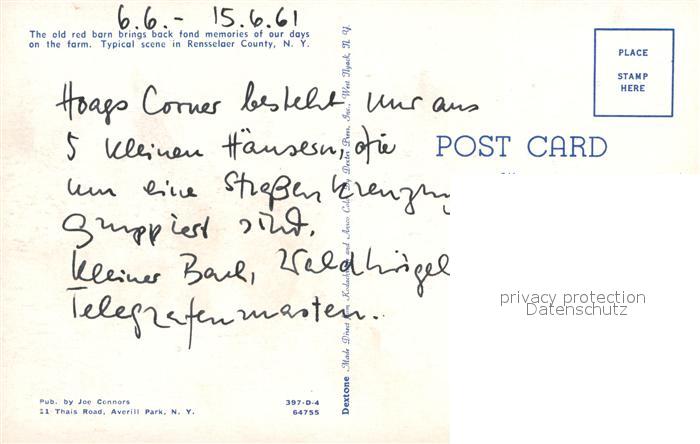 6.6. - 15.6.61
The old red barn brings back fond memories of our days
on the farm. Typical scene in Rensselaer County, N. Y.
PLACE
STAMP
HERE
POST CARD
Hoags Corner besteht nur aus
5 kleinen Häusern, die
um eine Straßenkreuzung
gruppiert sind.
Kleiner Bach, Waldhügel
Telegrafenmasten.
privacy protection
Datenschutz
Pub. by Joe Connors
11 Thais Road, Averill Park, N. Y.
397-D-4
64755
Dextone Made Direct from Kodachrome and Ansco Color by Dexter Press, Inc., West Nyack, N. Y.